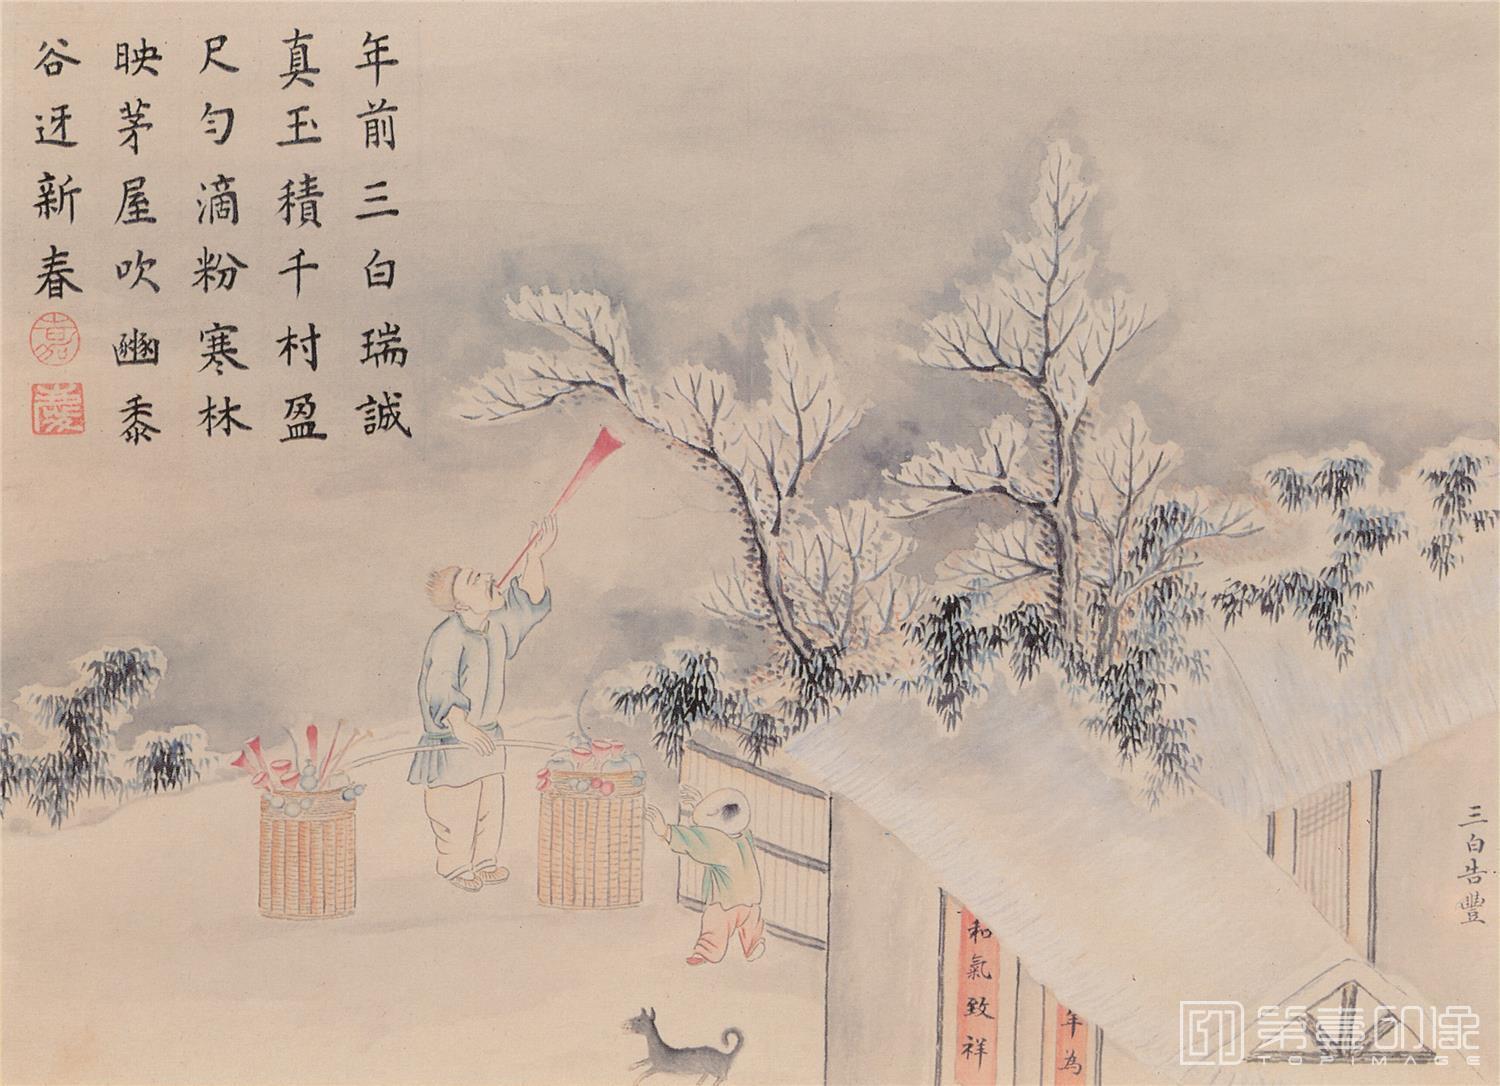 年前三白瑞誠
真玉積千村盈
尺勻滴粉寒林
映茅屋吹豳黍
谷迓新春
嘉
慶
三白告豐
和氣致祥
年為
第壹印像
TOPIMAGE